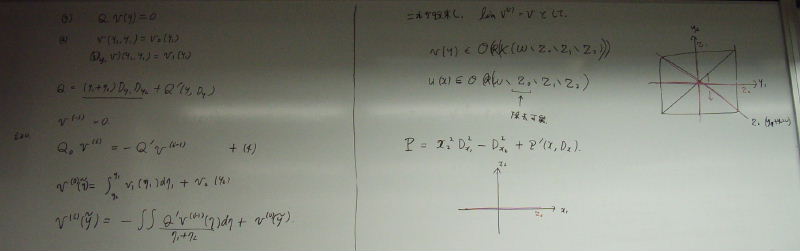 (3) Q v(y) = 0
(4) v(y₂, y₂) = v₀(y₂)
(D_{y₁} v)(y₁, y₂) = v₁(y₂)
Q = (y₁+y₂) D_{y₁} D_{y₂} + Q'(y, D_y)
v^{(-1)} = 0.
Q₀ v^{(k)} = -Q' v^{(k-1)} + (4)
v^{(0)}(ỹ) = ∫_{y₂}^{y₁} v₁(η₁) dη₁ + v₀(y₂)
v^{(k)}(ỹ) = - ∫∫ Q' v^{(k-1)}(η) / (η₁+η₂) dη + v^{(0)}(ỹ).
lim v^{(k)} = v として.
v(y) ∈ O(R(ω \ Z₀ \ Z₁ \ Z₂))
u(x) ∈ O R(ω \ Z₀ \ Z₁ \ Z₂)
除去可能
P = x₂² D²_{x₁} - D²_{x₂} + P'(x, D_x).
x₂
x₁
Z₀
y₂
Z₁
y₁
Z₂